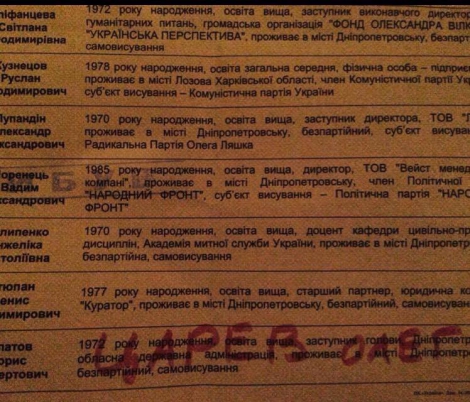 1972 року народження, освіта вища, заступник виконавчого директор
гуманітарних питань, громадська організація "ФОНД ОЛЕКСАНДРА ВІЛК
"УКРАЇНСЬКА ПЕРСПЕКТИВА", проживає в місті Дніпропетровську, безпарт
самовисування
піфанцева
Світлана
одимирівна
Кузнєцов
Руслан
одимирович
1978 року народження, освіта загальна середня, фізична особа – підприєм
проживає в місті Лозова Харківської області, член Комуністичної партії Укр
суб'єкт висування – Комуністична партія України
Мупандін
лександр
ксандрович
1970 року народження, освіта вища, заступник директора, ТОВ "Л
проживає в місті Дніпропетровську, безпартійний, суб'єкт висув
Радикальна Партія Олега Ляшка
Вадим
ксандрович
1985 року народження, освіта вища, директор, ТОВ "Вейст менед
компані", проживає в місті Дніпропетровську, член Політичної
"НАРОДНИЙ ФРОНТ", суб'єкт висування – Політична партія "НАРО
ФРОНТ"
липенко
нжеліка
толіївна
1970 року народження, освіта вища, доцент кафедри цивільно-пр
дисциплін, Академія митної служби України, проживає в місті Дніпропетр
безпартійна, самовисування
тюпан
енис
имирович
1977 року народження, освіта вища, старший партнер, юридична ко
"Куратор", проживає в місті Дніпропетровську, безпартійний, самовисуван
латов
орис
ертович
1972 року народження, освіта вища, заступник голови, Дніпропетр
обласна державна адміністрація, проживає в місті Дніпропетровс
безпартійний, самовисування
ЦАРЕВ ОЛЕГ